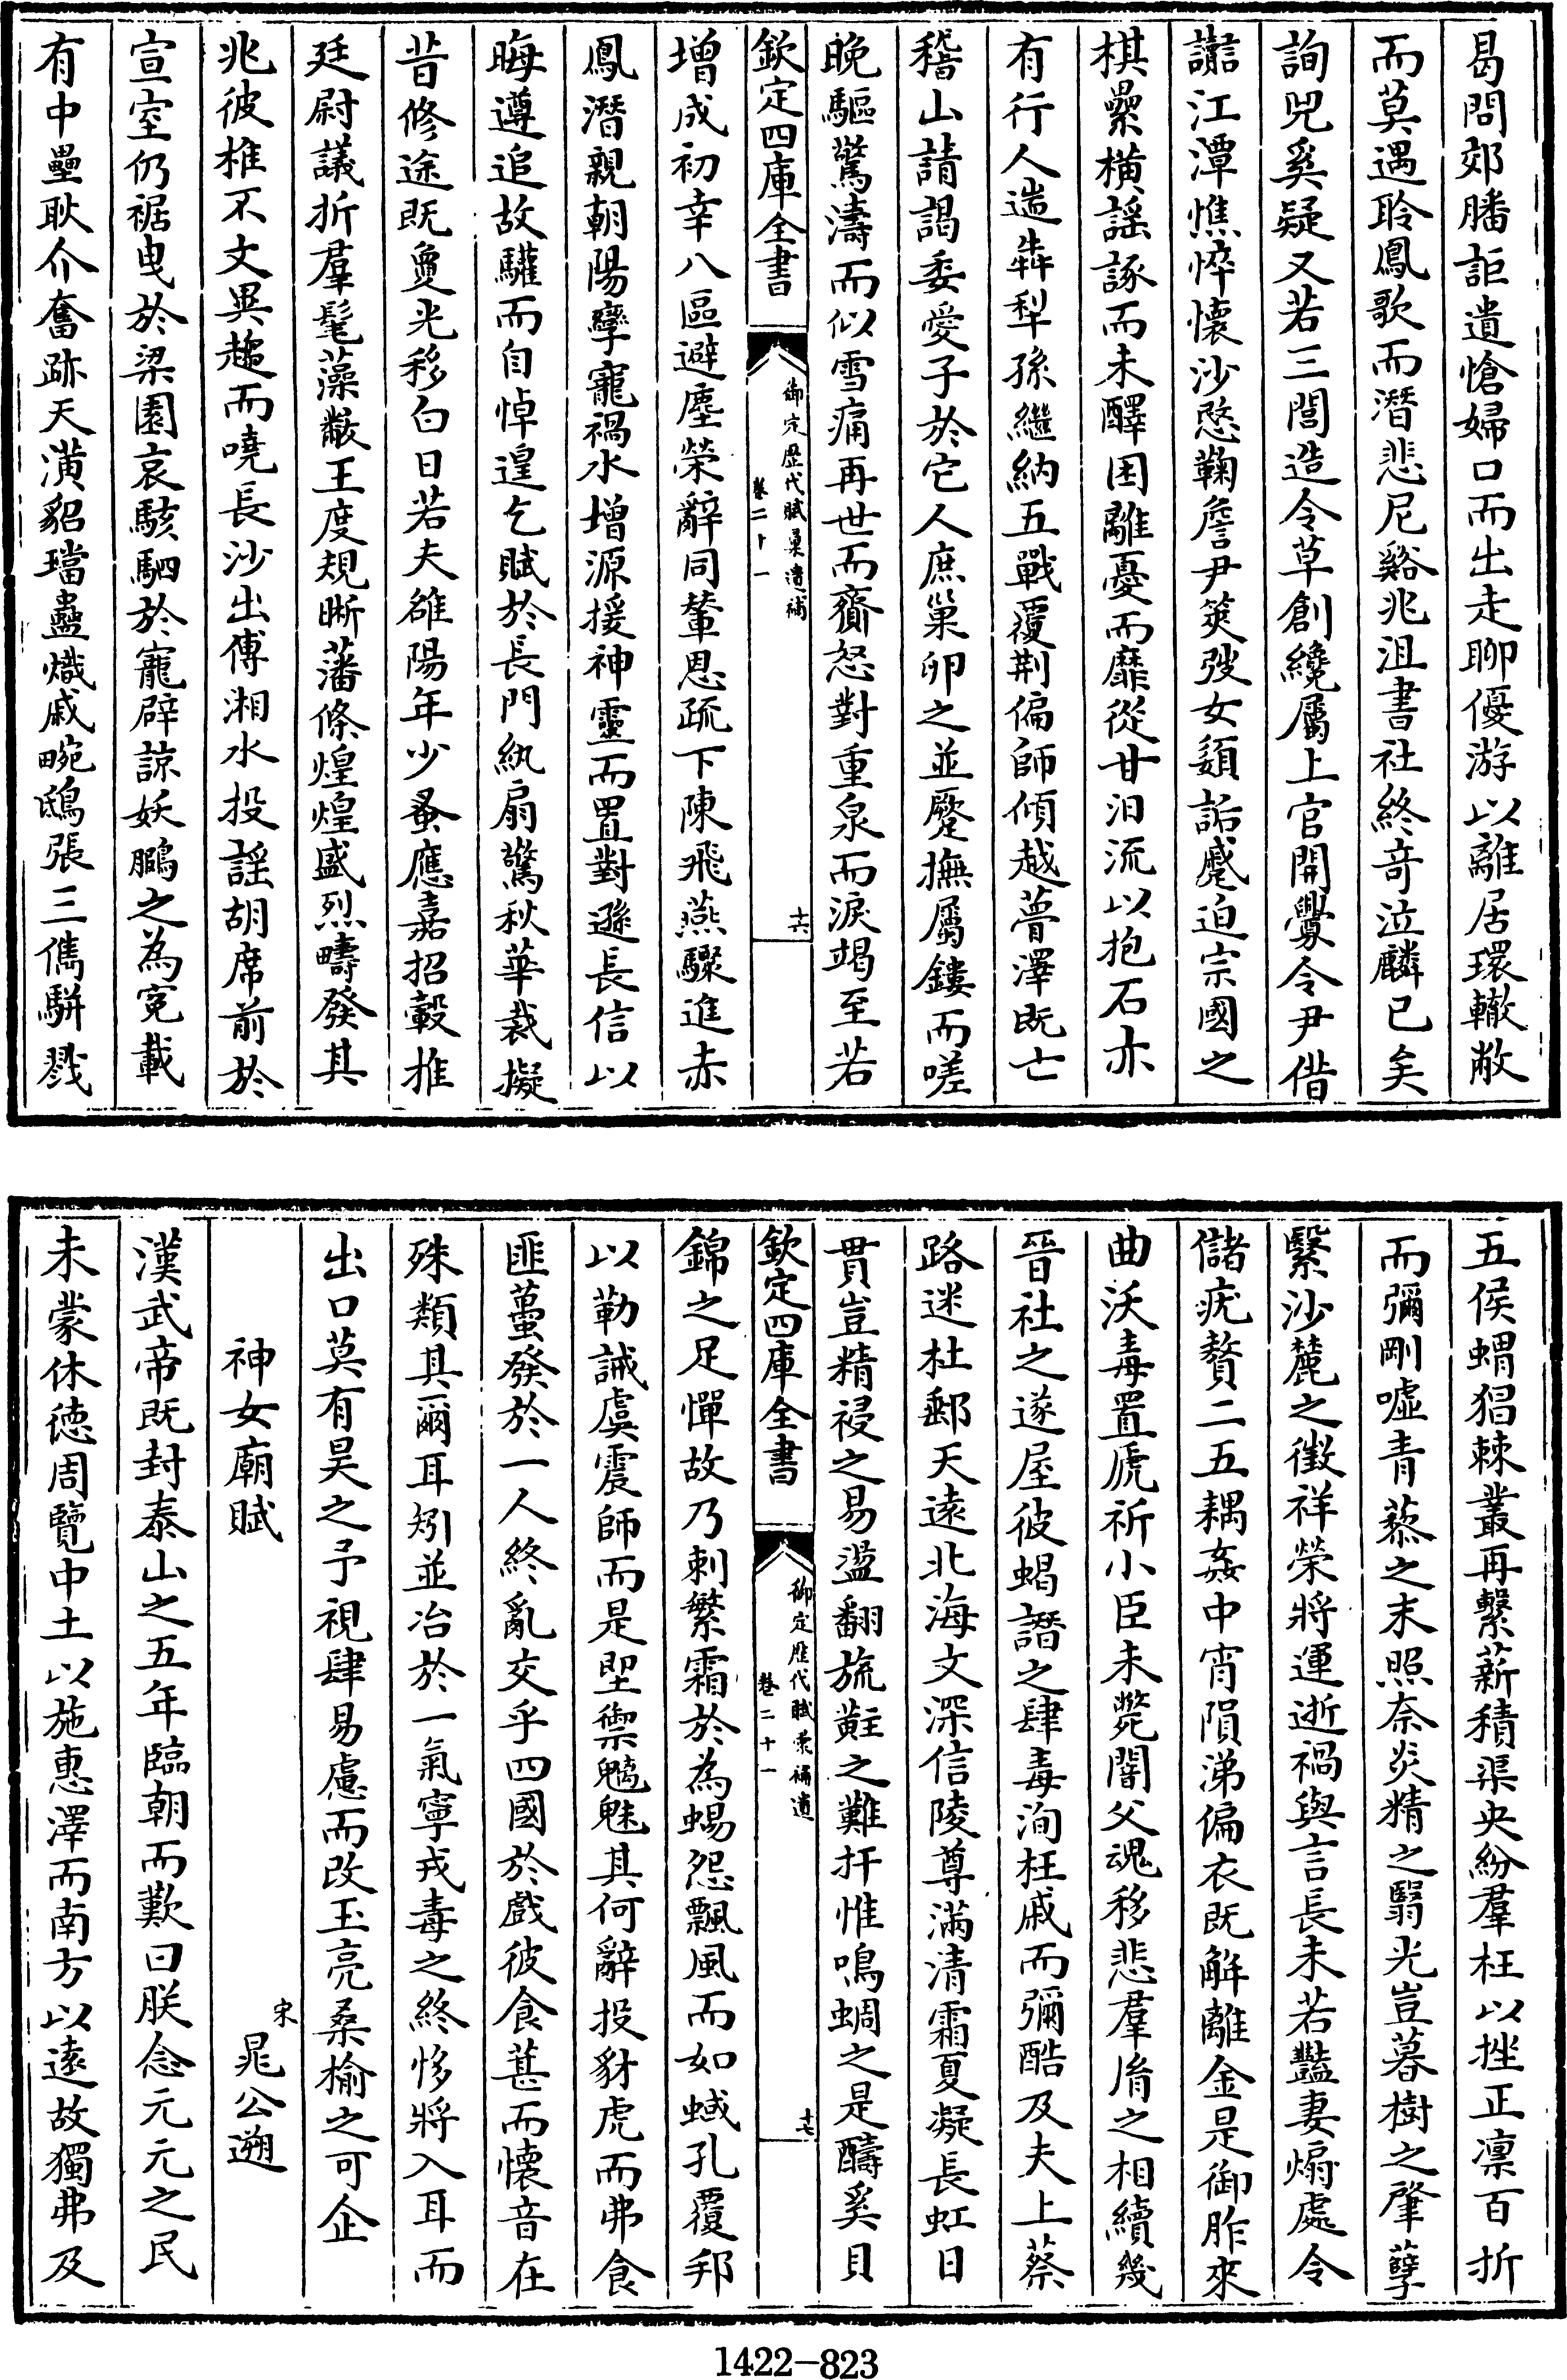 曷問郊膰詎遺愴婦口而出走聊優游以離居環轍敝
而莫遇聆鳳歌而潛悲尼谿兆沮書社終竒泣麟已矣
詢兕奚疑又若三閭造令草創纔屬上官開釁令尹偕
譖江潭憔悴懷沙愁鞠詹尹筴弢女嬃詬蹙迫宗國之
棋纍橫謡諑而未醳困離憂而靡從甘汨流以抱石亦
有行人遄犇犁孫繼納五戰覆荆偏師傾越蒼澤既亡
稽山請謁委愛子於它人庶巢卵之並蹷撫屬鏤而嗟
晚驅驚濤而似雪痛再世而齎怒對重泉而淚竭至若
欽定四庫全書
御定歷代賦彙遺補
卷二十一
十六
增成初幸八區避塵榮辭同輦恩疏下陳飛燕驟進赤
鳳潛親朝陽孽寵禍水增源援神靈而置對遜長信以
晦遵追故驩而自悼遑乞賦於長門紈扇驚秋華裁擬
昔修途既敻光移白日若夫雒陽年少蚤應嘉招轂推
廷尉議折羣髦藻黻王度規晰藩條煌煌盛烈疇發其
兆彼椎不文異趨而嘵長沙出傅湘水投謡胡席前於
宣室仍裾曳於梁園哀駭駟於寵辟諒妖鵩之為寃載
有中壘耿介奮跡天潢貂璫蠱熾戚畹鴟張三儁駢戮
五侯蝟猖棘叢再繫薪積渠央紛羣枉以挫正凛百折
而彌剛噓青藜之末照奈炎精之翳光豈暮樹之肇孽
繄沙麓之徵祥榮將運逝禍與言長未若豔妻煽處令
儲疣贅二五耦姦中宵隕涕偏衣既解離金是御胙來
曲沃毒置虒祈小臣未斃闇父魂移悲羣胥之相續幾
晉社之遂屋彼蝎譖之肆毒洵枉戚而彌酷及夫上蔡
路迷杜郵天遠北海文深信陵尊滿清霜夏凝長虹日
貫豈精祲之易盪翻旒黈之難扞惟鳴蜩之是醻奚貝
欽定四庫全書
御定歷代賦彙補遺
卷二十一
十七
錦之足憚故乃刺繁霜於為蜴怨飄風而如蜮孔覆邦
以勒誡虞震師而是堲禦魑魅其何辭投豺虎而弗食
匪蠆發於一人終亂交乎四國於戲彼食葚而懷音在
殊類其爾耳矧並冶於一氣寧戎毒之終恀將入耳而
出口莫有昊之予視肆易慮而改玉亮桑榆之可企
神女廟賦
宋
晁公遡
漢武帝既封泰山之五年臨朝而歎曰朕念元元之民
未蒙休徳周覽中土以施惠澤而南方以逺故獨弗及
1422-823